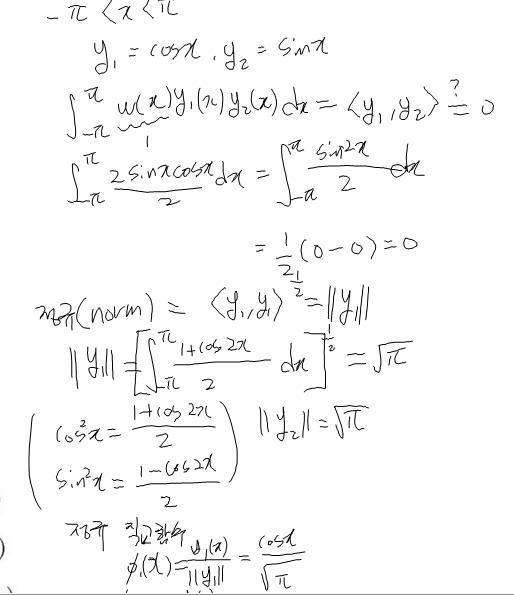 -π < x < π
y₁ = cosx , y₂ = sinx
∫_{-π}^{π} w(x)y₁(x)y₂(x)dx = ⟨y₁,y₂⟩ ≟ 0
1
∫_{-π}^{π} (2sinxcosx)/2 dx = ∫_{-π}^{π} (sin2x)/2 dx
= 1/2 (0-0) = 0
정규(norm) = ⟨y₁,y₁⟩^{1/2} = ||y₁||
||y₁|| = [∫_{-π}^{π} (1+cos2x)/2 dx]^{1/2} = √π
(cos²x = (1+cos2x)/2 ||y₂|| = √π
sin²x = (1-cos2x)/2)
정규 직교함수
φ₁(x) = y₁(x)/||y₁|| = cosx/√π